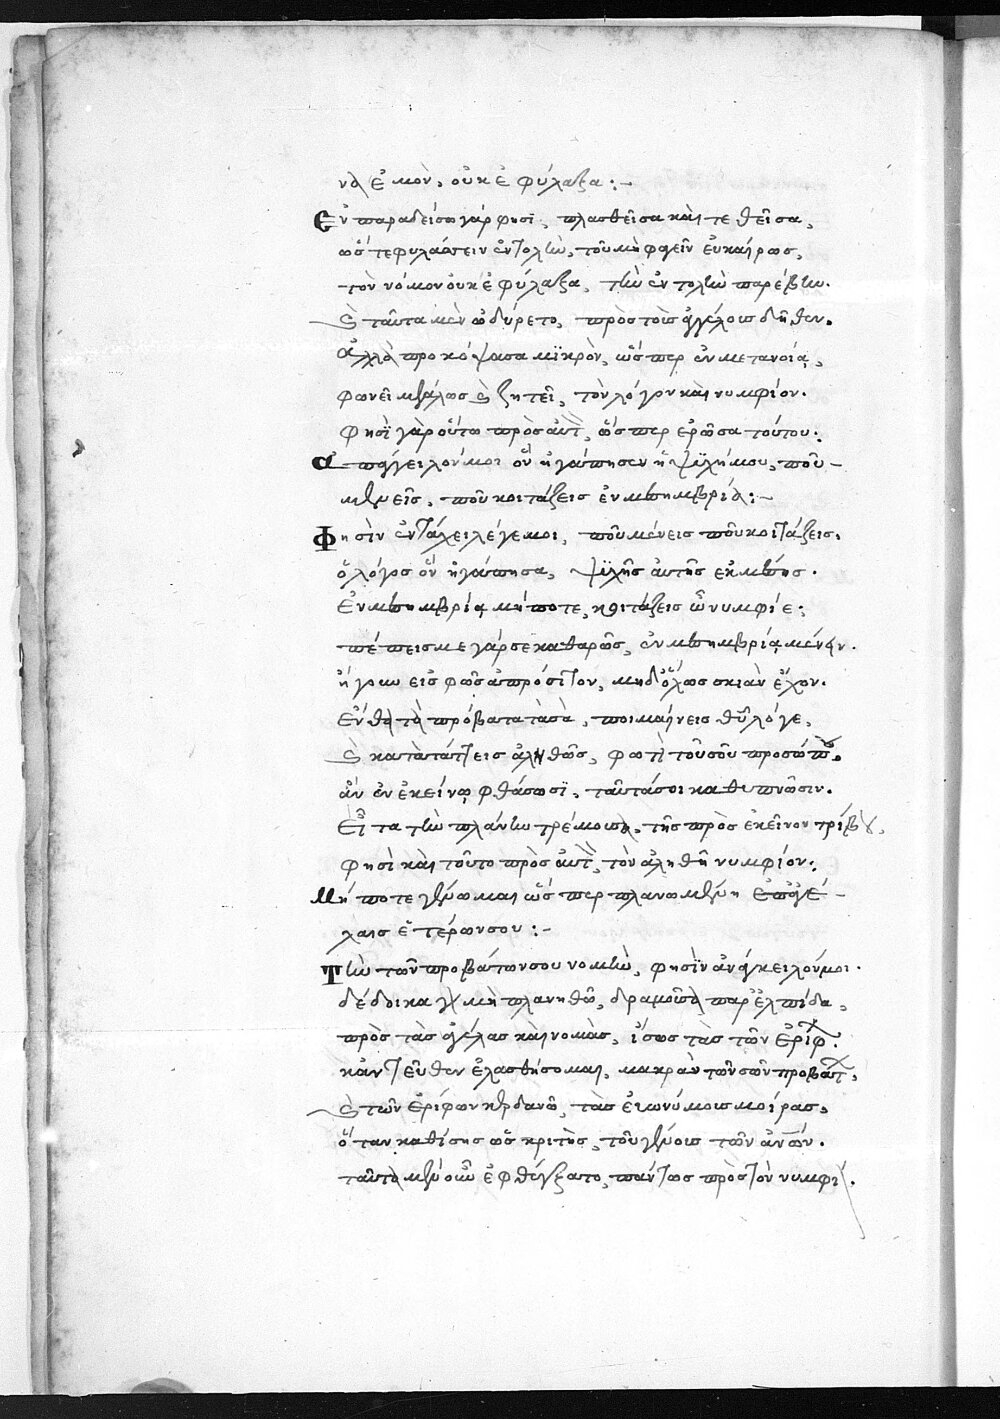 να ἐμὸν, οὐκ ἐφύλαξα :-
Ἐν παραδείσω γάρ φησι, πλασθεῖσα καὶ τεθεῖσα,
ὥστε φυλάσσειν ἐντολὴν, τοῦ μὴ φαγεῖν εὐκαίρως,
τὸν νόμον οὐκ ἐφύλαξα, τὴν ἐντολὴν παρέβην.
καὶ ταῦτα μὲν ὠδύρετο, πρὸς τοῖς ἀγγέλοις δῆθεν.
ἀλλὰ προκόψασα μϊκρὸν, ὥσπερ ἐν μετανοίᾳ,
φωνεῖ μεγάλως καὶ ζητεῖ, τὸν λόγον καὶ νυμφίον.
Φησῒ γὰρ οὕτω πρὸς αὐτὸν, ὥσπερ ἐρῶσα τούτου.
ἀπάγγειλόν μοι ὃν ἠγάπησεν ἡ ψϋχή μου, ποῦ
μένεις, ποῦ κοιτάζεις ἐν μεσημβρίᾳ :-
Φησὶν ἐν τάχει λέγε μοι, ποῦ μένεις ποῦ κοιτάζεις.
ὁ λόγος ὃν ἠγάπησα, ψϋχῆς αὐτῆς ἐκ μέσης.
Ἐν μεσημβρίᾳ μήποτε, κοιτάζεις ὦ νυμφίε;
πέπεισμε γάρ σε καθαρῶς, ἐν μεσημβρίᾳ μένειν.
ἤγουν εἰς φῶς ἀπρόσϊτον, μηδόλως σκιὰν ἔχον.
Ἔνθα τὰ πρόβατα τὰ σὰ, ποιμαίνεις θεοῦ λόγε,
καὶ κατατάττεις ἀληθῶς, φωτὶ τοῦ σοῦ προσώπου.
ἂν ἐν ἐκείνῳ φθάσωσϊ, ταῦτά σοι καθυπνῶσιν.
Εἶτα τὴν πλάνην τρέμουσα, τῆς πρὸς ἐκεῖνον τρίβου,
φησὶ καὶ τοῦτο πρὸς αὐτὸν, τὸν ἀληθῆ νυμφίον.
Μήποτε γένωμαι ὥσπερ πλανωμένη ἐπ' ἀγέ-
λαις ἑτέρων σου :-
Τὴν τῶν προβάτων σου νομὴν, φησῒν ἀνάγκειλόν μοι.
δέδοικα γὰρ μὴ πλανηθῶ, δραμοῦσα παρ' ἐλπίδα,
πρὸς τὰς ἀγέλας καὶ νομὰς, ἴσως τὰς τῶν ἐρίφων.
κἀντεῦθεν ἐλασθήσομαι, μακρὰν τῶν σῶν προβάτων,
καὶ τῶν ἐρίφων κερδανῶ, τὰς εὐωνύμοις μοίρας,
ὅταν καθίσης ὡς κριτὴς, τοῦ γένους τῶν ἀνων.
ταῦτα μὲν οὖν ἐφθέγξατο, πάντως πρὸς τὸν νυμφίον.